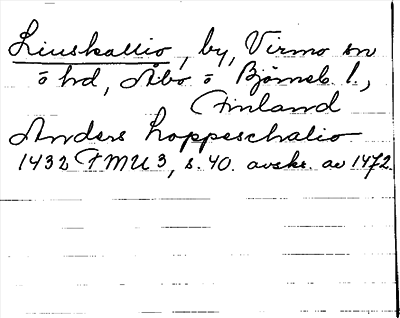 Liuskallio, by, Virmo sn
o hd, Åbo o Björneb. l.,
Finland
Anders Loppeschalio
1432 FMU 3, s. 40. avskr. av 1472.